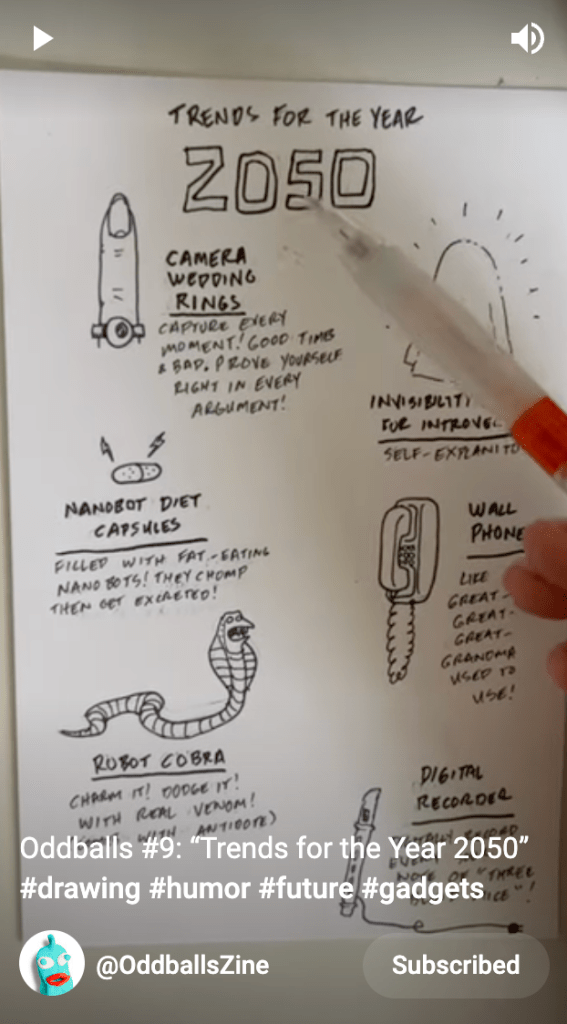 TRENDS FOR THE YEAR
2050
CAMERA
WEDDING
RINGS
CAPTURE EVERY
MOMENT! GOOD TIMES
& BAD. PROVE YOURSELF
RIGHT IN EVERY
ARGUMENT!
FOR
SELF-
NANOBOT DIET
CAPSULES
FILLED WITH FAT-EATING
NANOBOTS! THEY CHOMP
THEN GET EXCRETED!
WALL
PHONE
LIKE
GREAT-
GREAT-
GREAT-
GRANDMA
USED TO
USE!
ROBOT COBRA
CHARM IT! DODGE IT!
WITH REAL VENOM!
WITH ANTIDOTE)
DIGITAL
RECORDER
NOTE OF "THREE
Oddballs #9: “Trends for the Year 2050”
#drawing #humor #future #gadgets
@OddballsZine
Subscribed